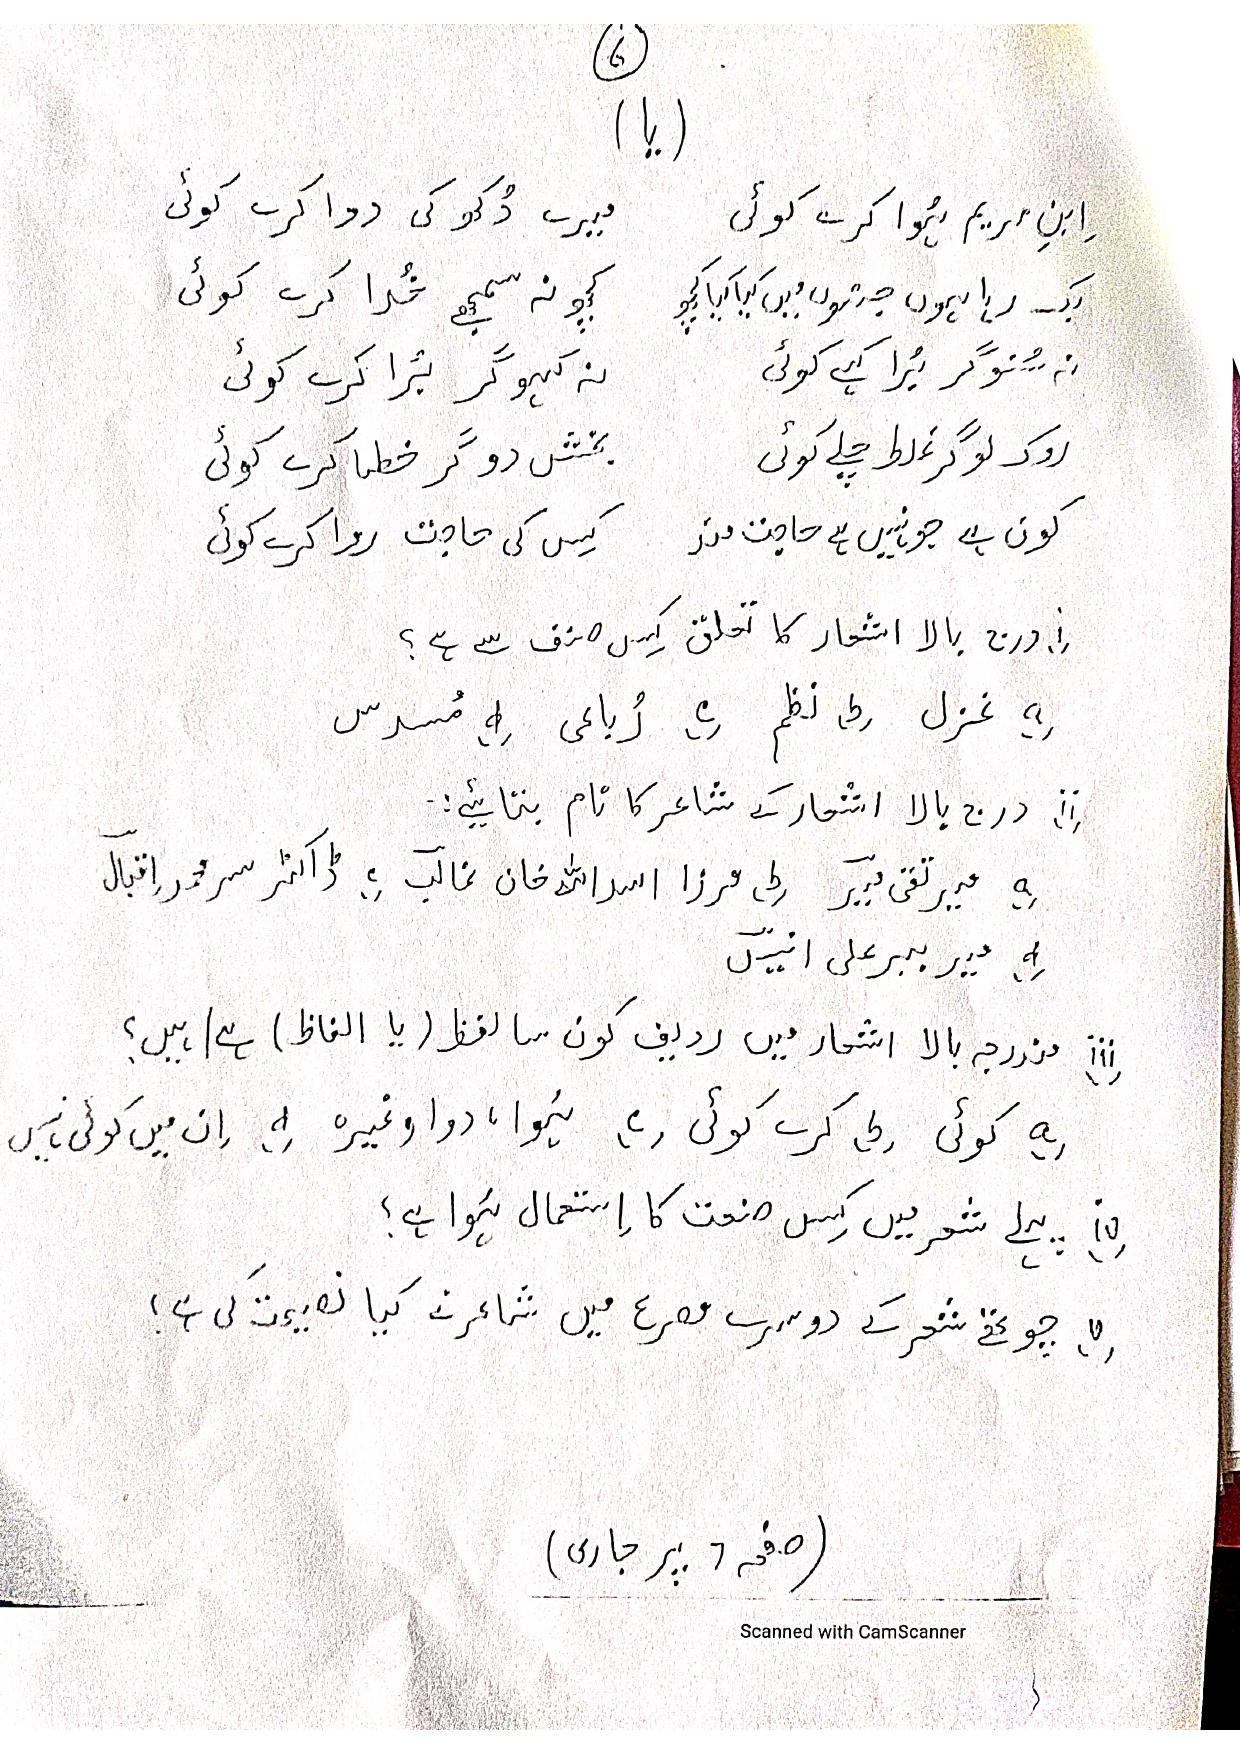 6
(یا)
اِبنِ مریم ہُوا کرے کوئی میرے دُکھ کی دوا کرے کوئی
بک رہا ہوں جنوں میں کیا کیا کچھ کچھ نہ سمجھے خُدا کرے کوئی
نہ سُنو گر بُرا کہے کوئی نہ کہو گر بُرا کرے کوئی
روک لو گر غلط چلے کوئی بخش دو گر خطا کرے کوئی
کون ہے جو نہیں ہے حاجت مند کِس کی حاجت روا کرے کوئی
(i) درج بالا اشعار کا تعلق کِس صنف سے ہے؟
(a) غزل (b) نظم (c) رُباعی (d) مُسدس
(ii) درج بالا اشعار کے شاعر کا نام بتائیے:-
(a) میر تقی میر (b) مرزا اسداللہ خان غالب (c) ڈاکٹر سر محمد اِقبال
(d) میر ببر علی انیس
(iii) مندرجہ بالا اشعار میں ردیف کون سا لفظ (یا الفاظ) ہے/ہیں؟
(a) کوئی (b) کرے کوئی (c) ہُوا، دوا وغیرہ (d) اِن میں کوئی نہیں
(iv) پہلے شعر میں کِس صنعت کا اِستعمال ہُوا ہے؟
(v) چوتھے شعر کے دوسرے مصرع میں شاعر نے کیا نصیحت کی ہے؟
(صفحہ 7 پر جاری)
Scanned with CamScanner